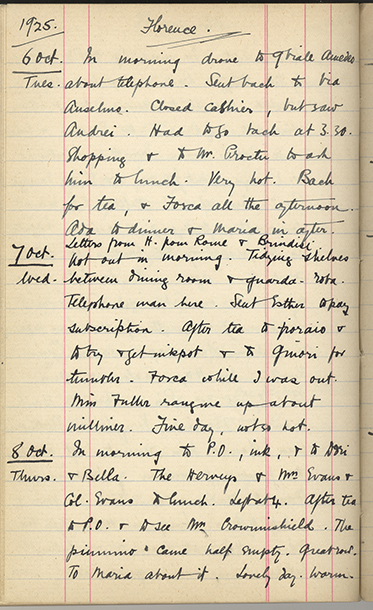 1925. Florence.
6 Oct. In morning drove to 9 Viale Amedeo
Tues. about telephone. Sent back to Via
Anselmo. Closed cashier, but saw
Andrei. Had to go back at 3.30.
Shopping & to Mr. Procter to ask
him to lunch. Very hot. Back
for tea, & Forca all the afternoon.
Ada to dinner & Maria in after.
Letters from H. from Rome & Brindisi.
7 Oct. Not out in morning. Tidying shelves
Wed. between dining room & guarda-roba.
Telephone man here. Sent Esther to pay
subscription. After tea to fioraio &
to try & get inkpot & to Ginori for
tumbler. Forca while I was out.
Miss Fuller rang me up about
milliner. Fine day, not so hot.
8 Oct. In morning to P.O., ink, & to
Thurs. & Bella. The Herveys & Mrs Evans &
Col. Evans to lunch. Left at 4. After tea
to P.O. & to see Mrs Crowninshield. The
"piumino" came half empty. Great row.
To Maria about it. Lovely day. Warm.